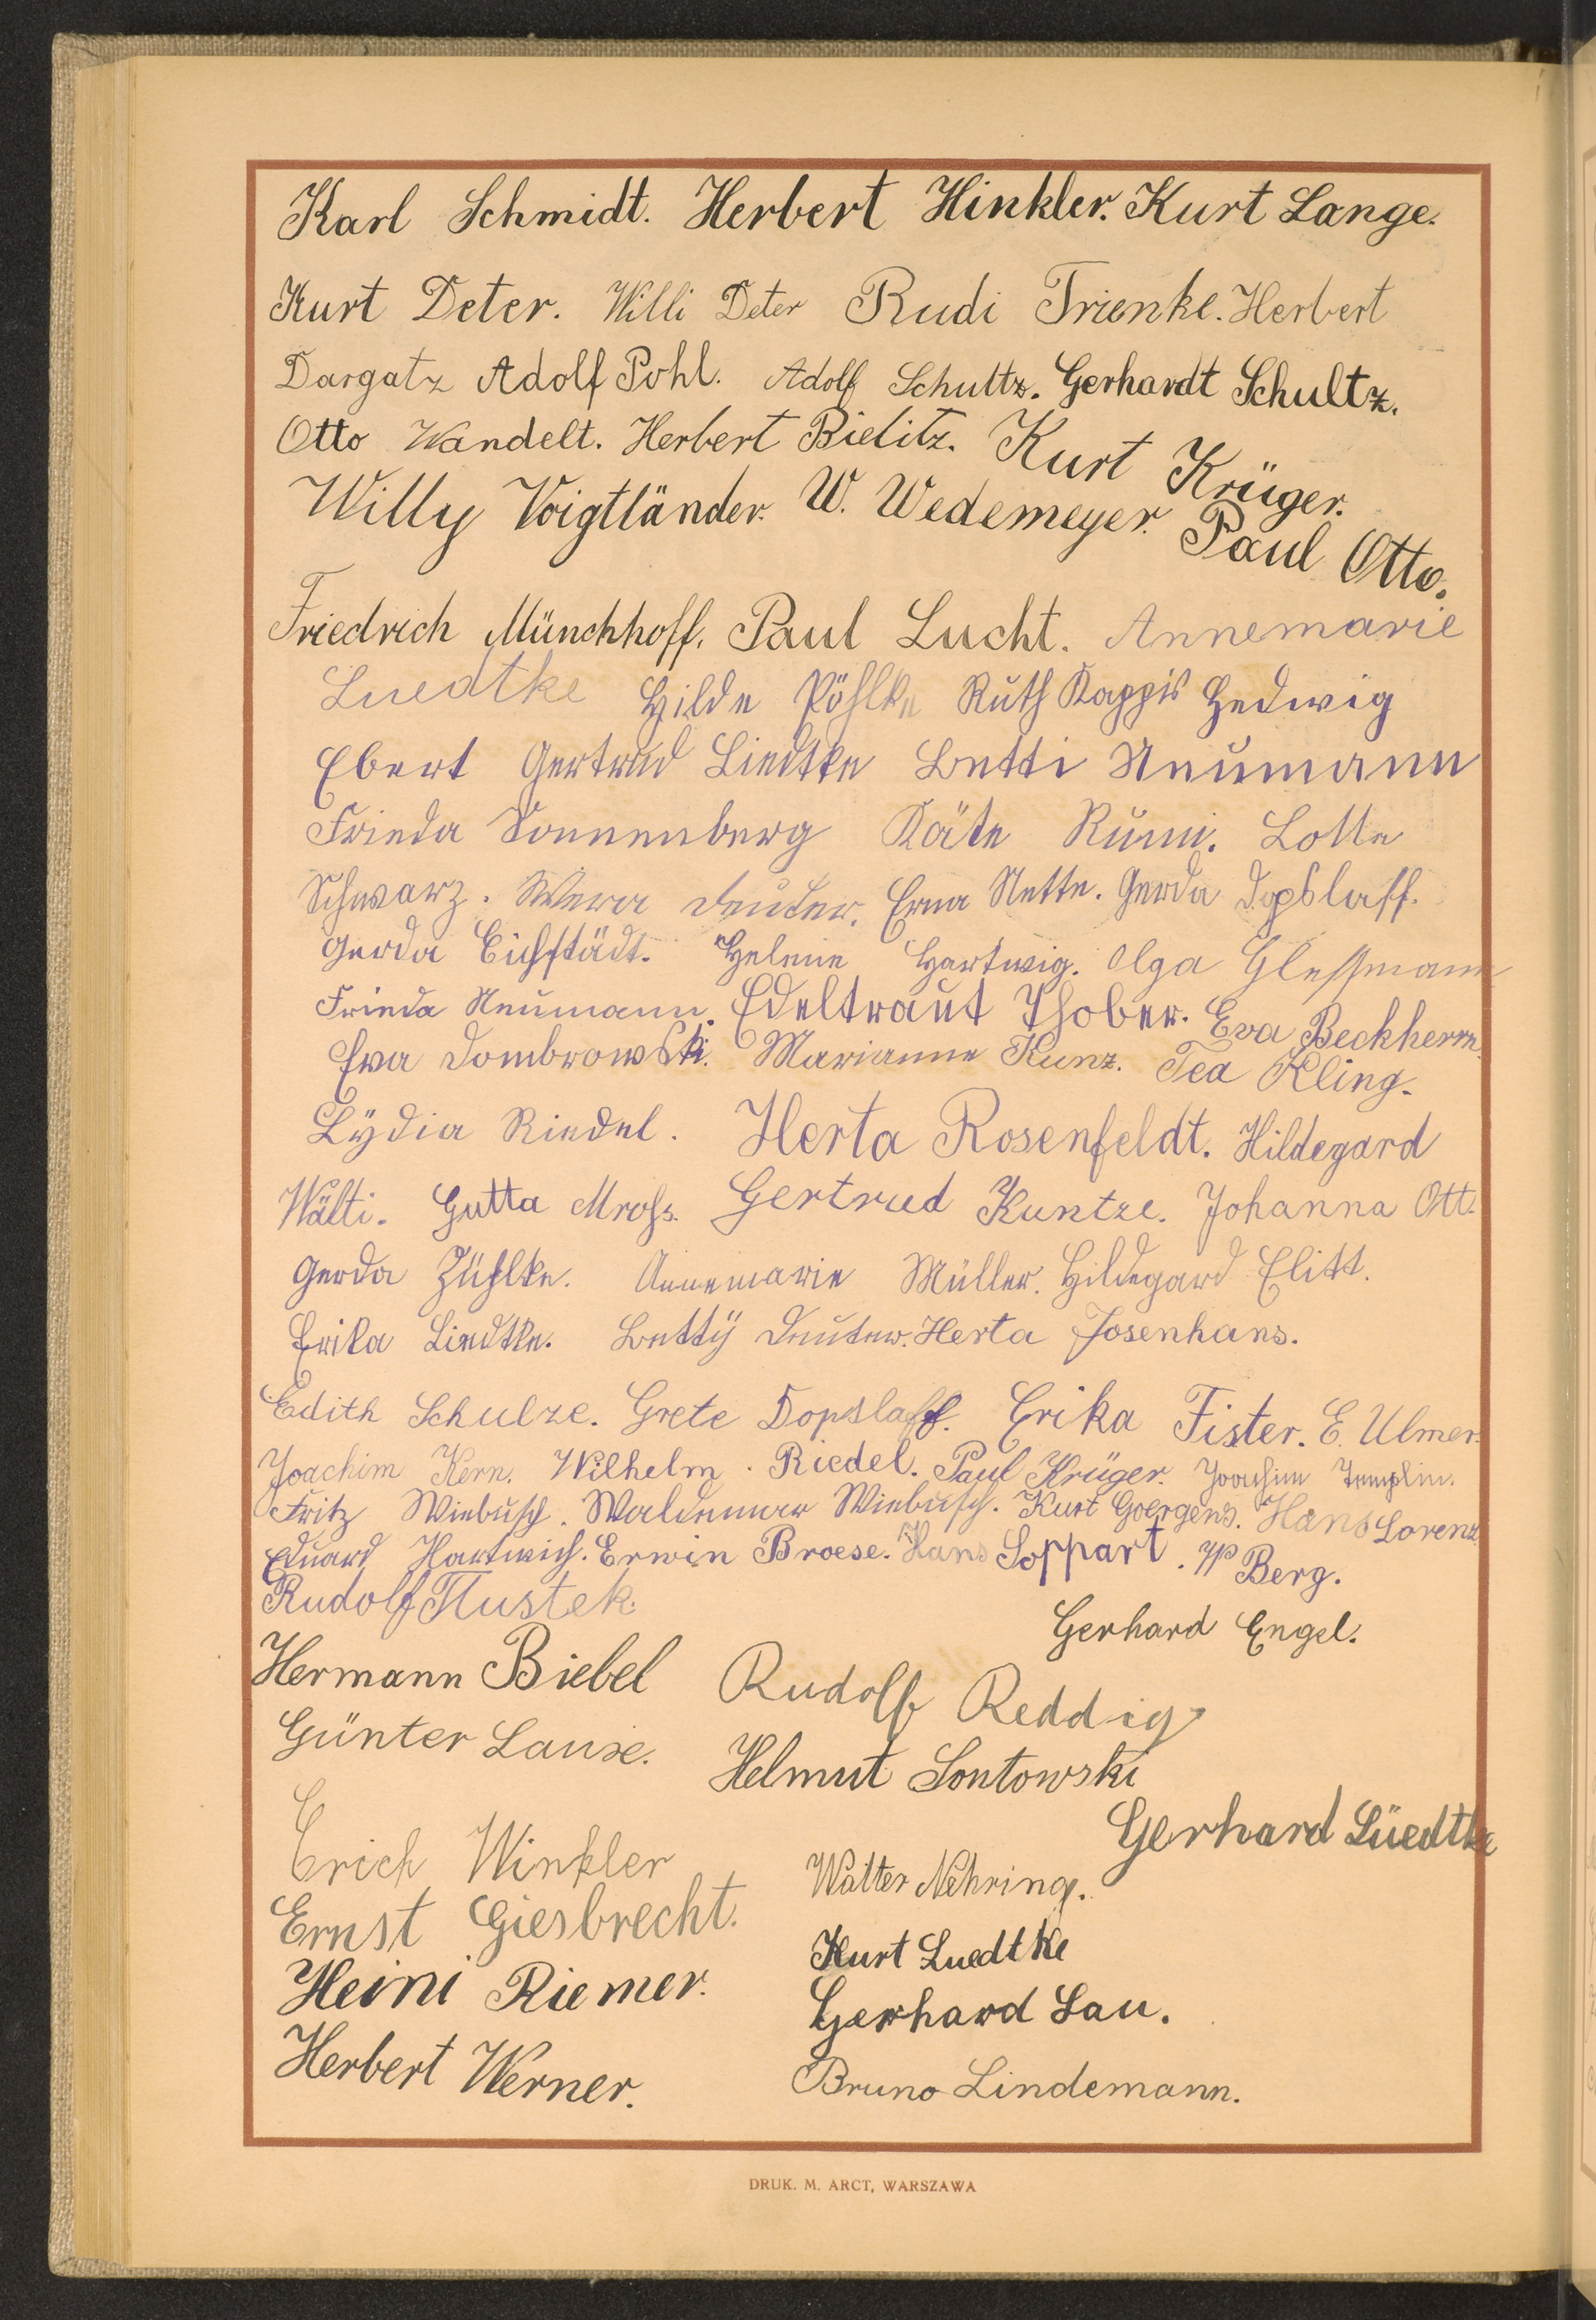 Karl Schmidt. Herbert Hinkler. Kurt Lange.
Kurt Deter. Willi Deter Rudi Trienke. Herbert
Dargatz Adolf Pohl. Adolf Schultz. Gerhardt Schultz.
Otto Wandelt. Herbert Bielitz. Kurt Krüger.
Willy Voigtländer. W. Wedemeyer. Paul Otto.
Friedrich Münchhoff. Paul Lucht. Annemarie
Luedtke Hilde Pöhlke Ruth Kappis Hedwig
Ebert Gertrud Liedtke Betti Neumann
Frieda Sonnenberg Käte Lotte
Schwarz. Wera Deuter. Erna Nette. Gerda Dopslaff.
Gerda Eichstädt. Helene Hartwig. Olga Glessmann
Frieda Neumann. Edeltraut Thober. Eva Beckherrn.
Eva Dombrowski. Marianne Kunz. Tea Kling.
Lydia Riedel. Herta Rosenfeldt. Hildegard
Wälti. Gutta Mross. Gertrud Kuntze. Johanna Ott.
Gerda Zühlke. Annemarie Müller. Hildegard Elitt.
Erika Liedtke. Betty Deuter. Herta Josenhans.
Edith Schulze. Grete Dopslaff. Erika Fister. E. Ulmer.
Joachim Kern. Wilhelm Riedel. Paul Krüger. Joachim Templin.
Fritz Wiebusch. Waldemar Wiebusch. Kurt Goergens. Hans Lorenz.
Eduard Hartwich. Erwin Broese. Hans Soppart. Berg.
Rudolf Tlustek.
Gerhard Engel.
Hermann Biebel Rudolf Reddig
Günter Lause. Helmut Sontowski
Gerhard Lüedtke
Erich Winkler Walter Nehring.
Ernst Giesbrecht. Kurt Luedtke
Heini Riemer. Gerhard Lau.
Herbert Werner. Bruno Lindemann.
DRUK. M. ARCT, WARSZAWA